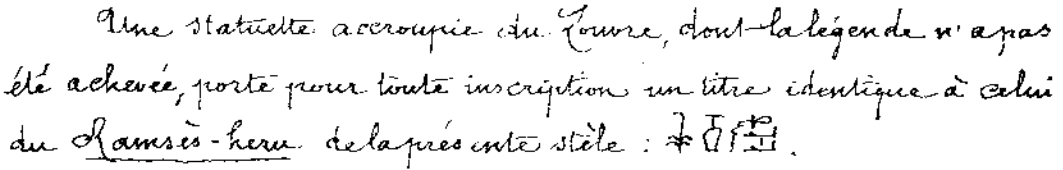 Une statuette accroupie du Louvre, dont la légende n'a pas
été achevée, porte pour toute inscription un titre identique à celui
du Ramsès-heru de la présente stèle :